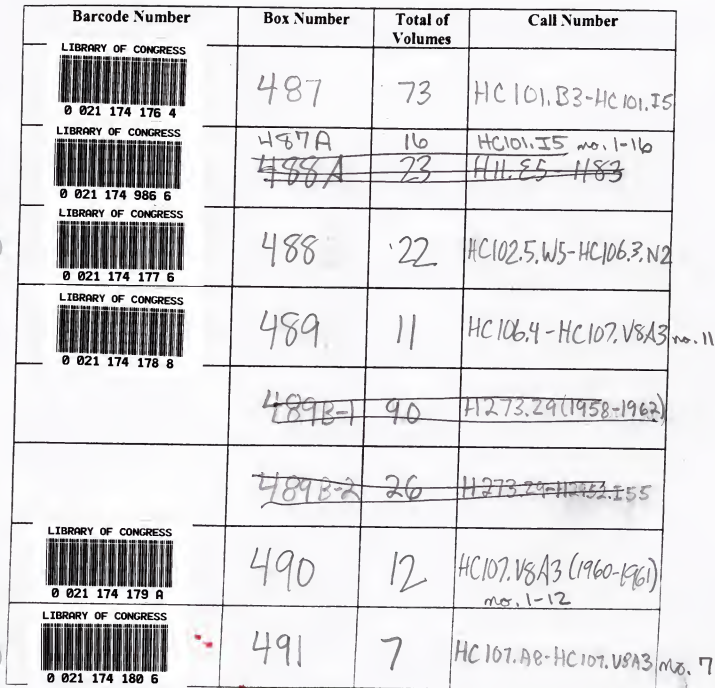 Barcode Number Box Number Total of Volumes Call Number
LIBRARY OF CONGRESS
0 021 174 176 4
487 73 HC101.B3-HC101.I5
LIBRARY OF CONGRESS
0 021 174 986 6
487A 16 HC101.I5 no. 1-16
488A 23 H11.E5-H83
LIBRARY OF CONGRESS
0 021 174 177 6
488 22 HC102.5.W5-HC106.3.N2
LIBRARY OF CONGRESS
0 021 174 178 8
489 11 HC106.4-HC107.V8A3 no. 11
489B-1 90 H273.29(1958-1962)
489B-2 26 H273.29-H2952.I55
LIBRARY OF CONGRESS
0 021 174 179 A
490 12 HC107.V8A3 (1960-1961)
no. 1-12
LIBRARY OF CONGRESS
0 021 174 180 6
491 7 HC107.A8-HC107.V8A3 no. 7